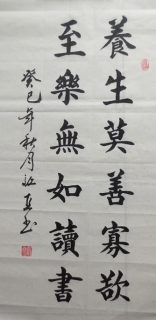 養生莫善寡欲
至樂無如讀書
癸巳年秋月